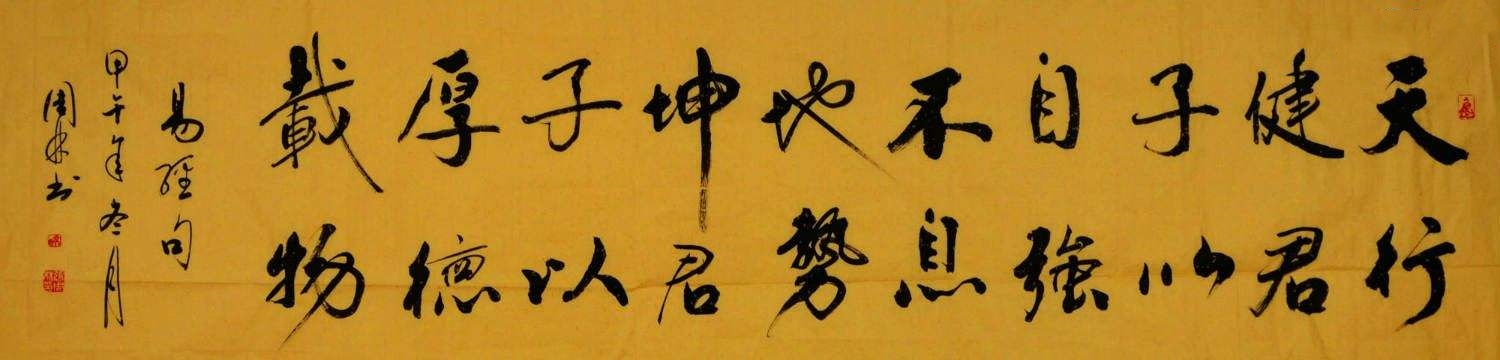 天行
健君
子以
自強
不息
地勢
坤君
子以
厚德
載物
易經句
甲午年冬月
周林书